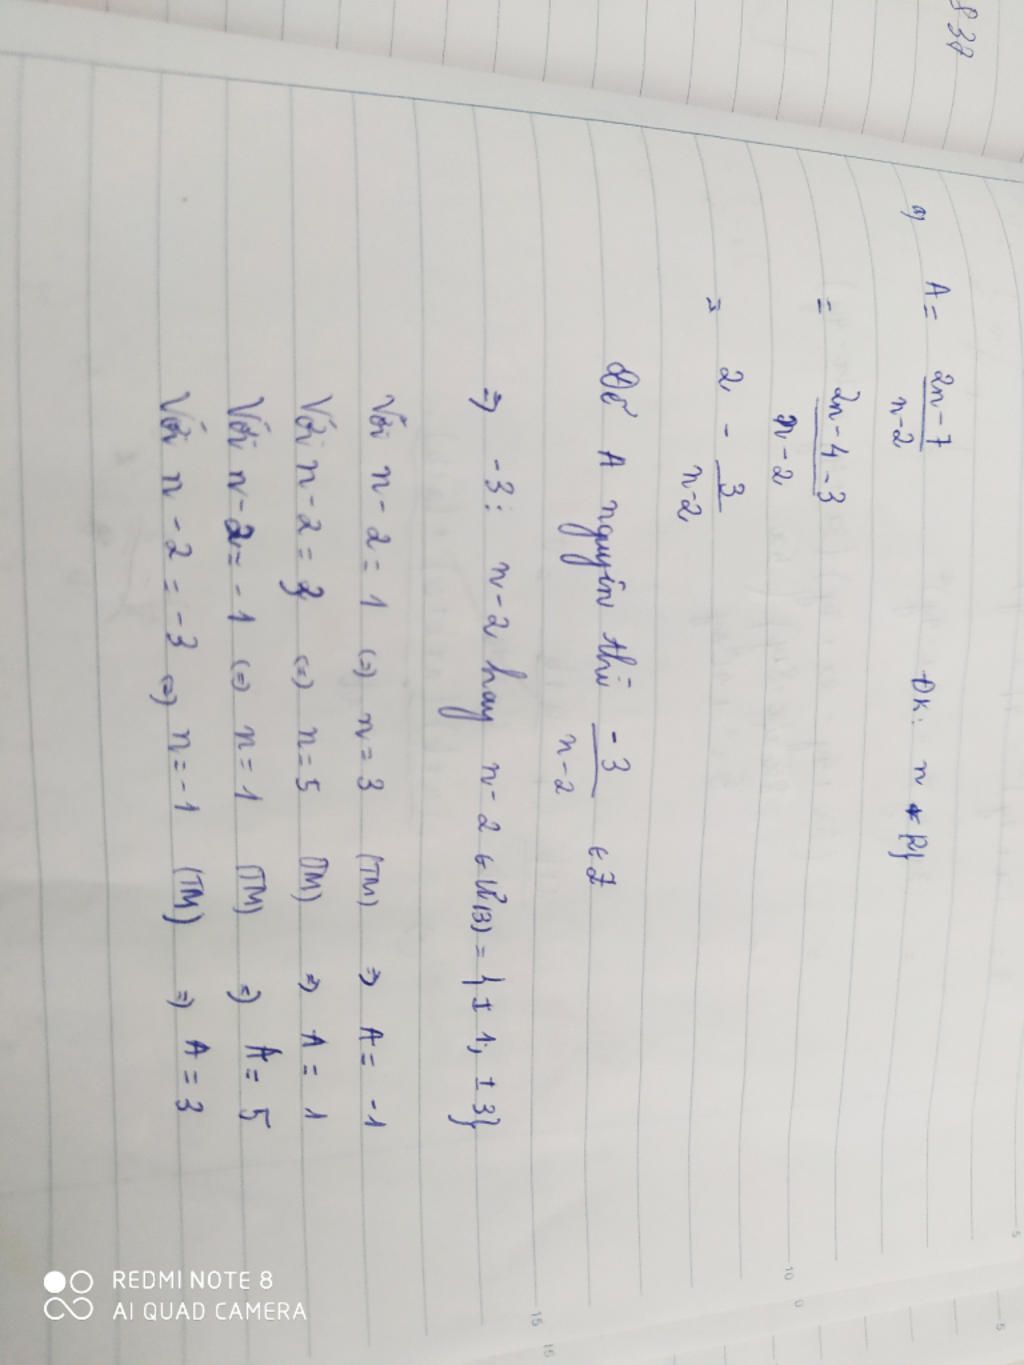 838
a) A = 2n-7 / n-2 ĐK: n ≠
= 2n-4-3 / n-2
= 2 - 3 / n-2
Để A nguyên thì -3 / n-2 ∈ Z
=> -3 ⋮ n-2 hay n-2 ∈ Ư(3) = {±1; ±3}
Với n-2=1 (=) n=3 (TM) => A = -1
Với n-2=3 (=) n=5 (TM) => A = 1
Với n-2=-1 (=) n=1 (TM) => A=5
Với n-2=-3 (=) n=-1 (TM) => A=3
5
10
0
5
15
15
REDMI NOTE 8
AI QUAD CAMERA